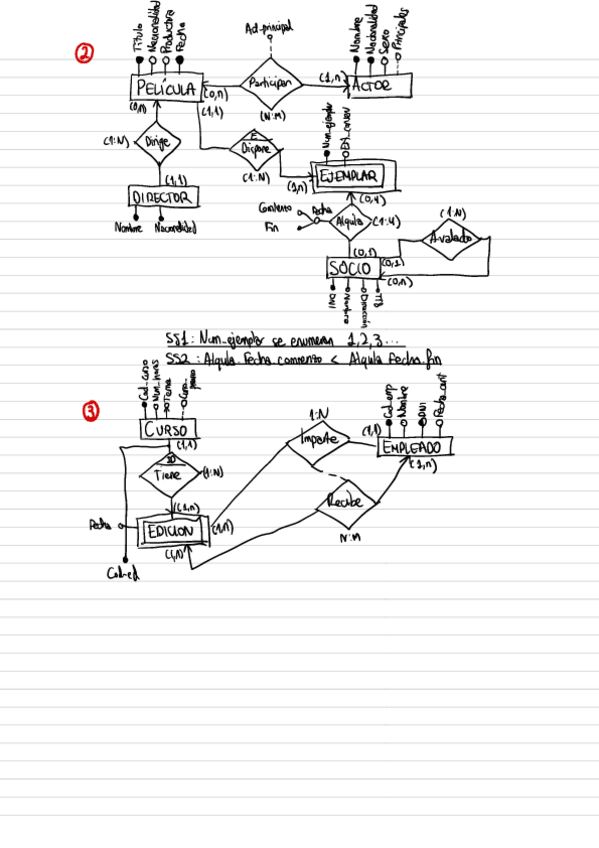 2
Ad-principal
Título
Nacionalidad
Productora
Fecha
Nombre
Nacionalidad
Sexo
Principales
PELÍCULA
Participan
ACTOR
(1,n)
(0,n)
(1,1)
(N:M)
(0,n)
Dirige
(1:N)
(1,1)
DIRECTOR
Nombre
Nacionalidad
E
Dispone
(1:N)
Num_ejemplar
(1,n)
EJEMPLAR
(0,4)
Comiento
Fecha
Fin
Alquila
(1:4)
(0,n)
SOCIO
DNI
Nombre
Dirección
Tfl
(1:N)
Avalado
(0,1)
(0,n)
SS1: Num_ejemplar se enumeran 1,2,3...
SS2: Alquila.Fecha_comiento < Alquila.Fecha_fin
3
Cod_curso
Num_horas
Tema
CURSO
(1,1)
ID
Tiene
(1:N)
(1,n)
Fecha
EDICION
(1,n)
(1,n)
Cod-ed
1:N
Imparte
(1,1)
Cod_emp
Nombre
DNI
Fecha_ant
EMPLEADO
(1,n)
Recibe
N:M